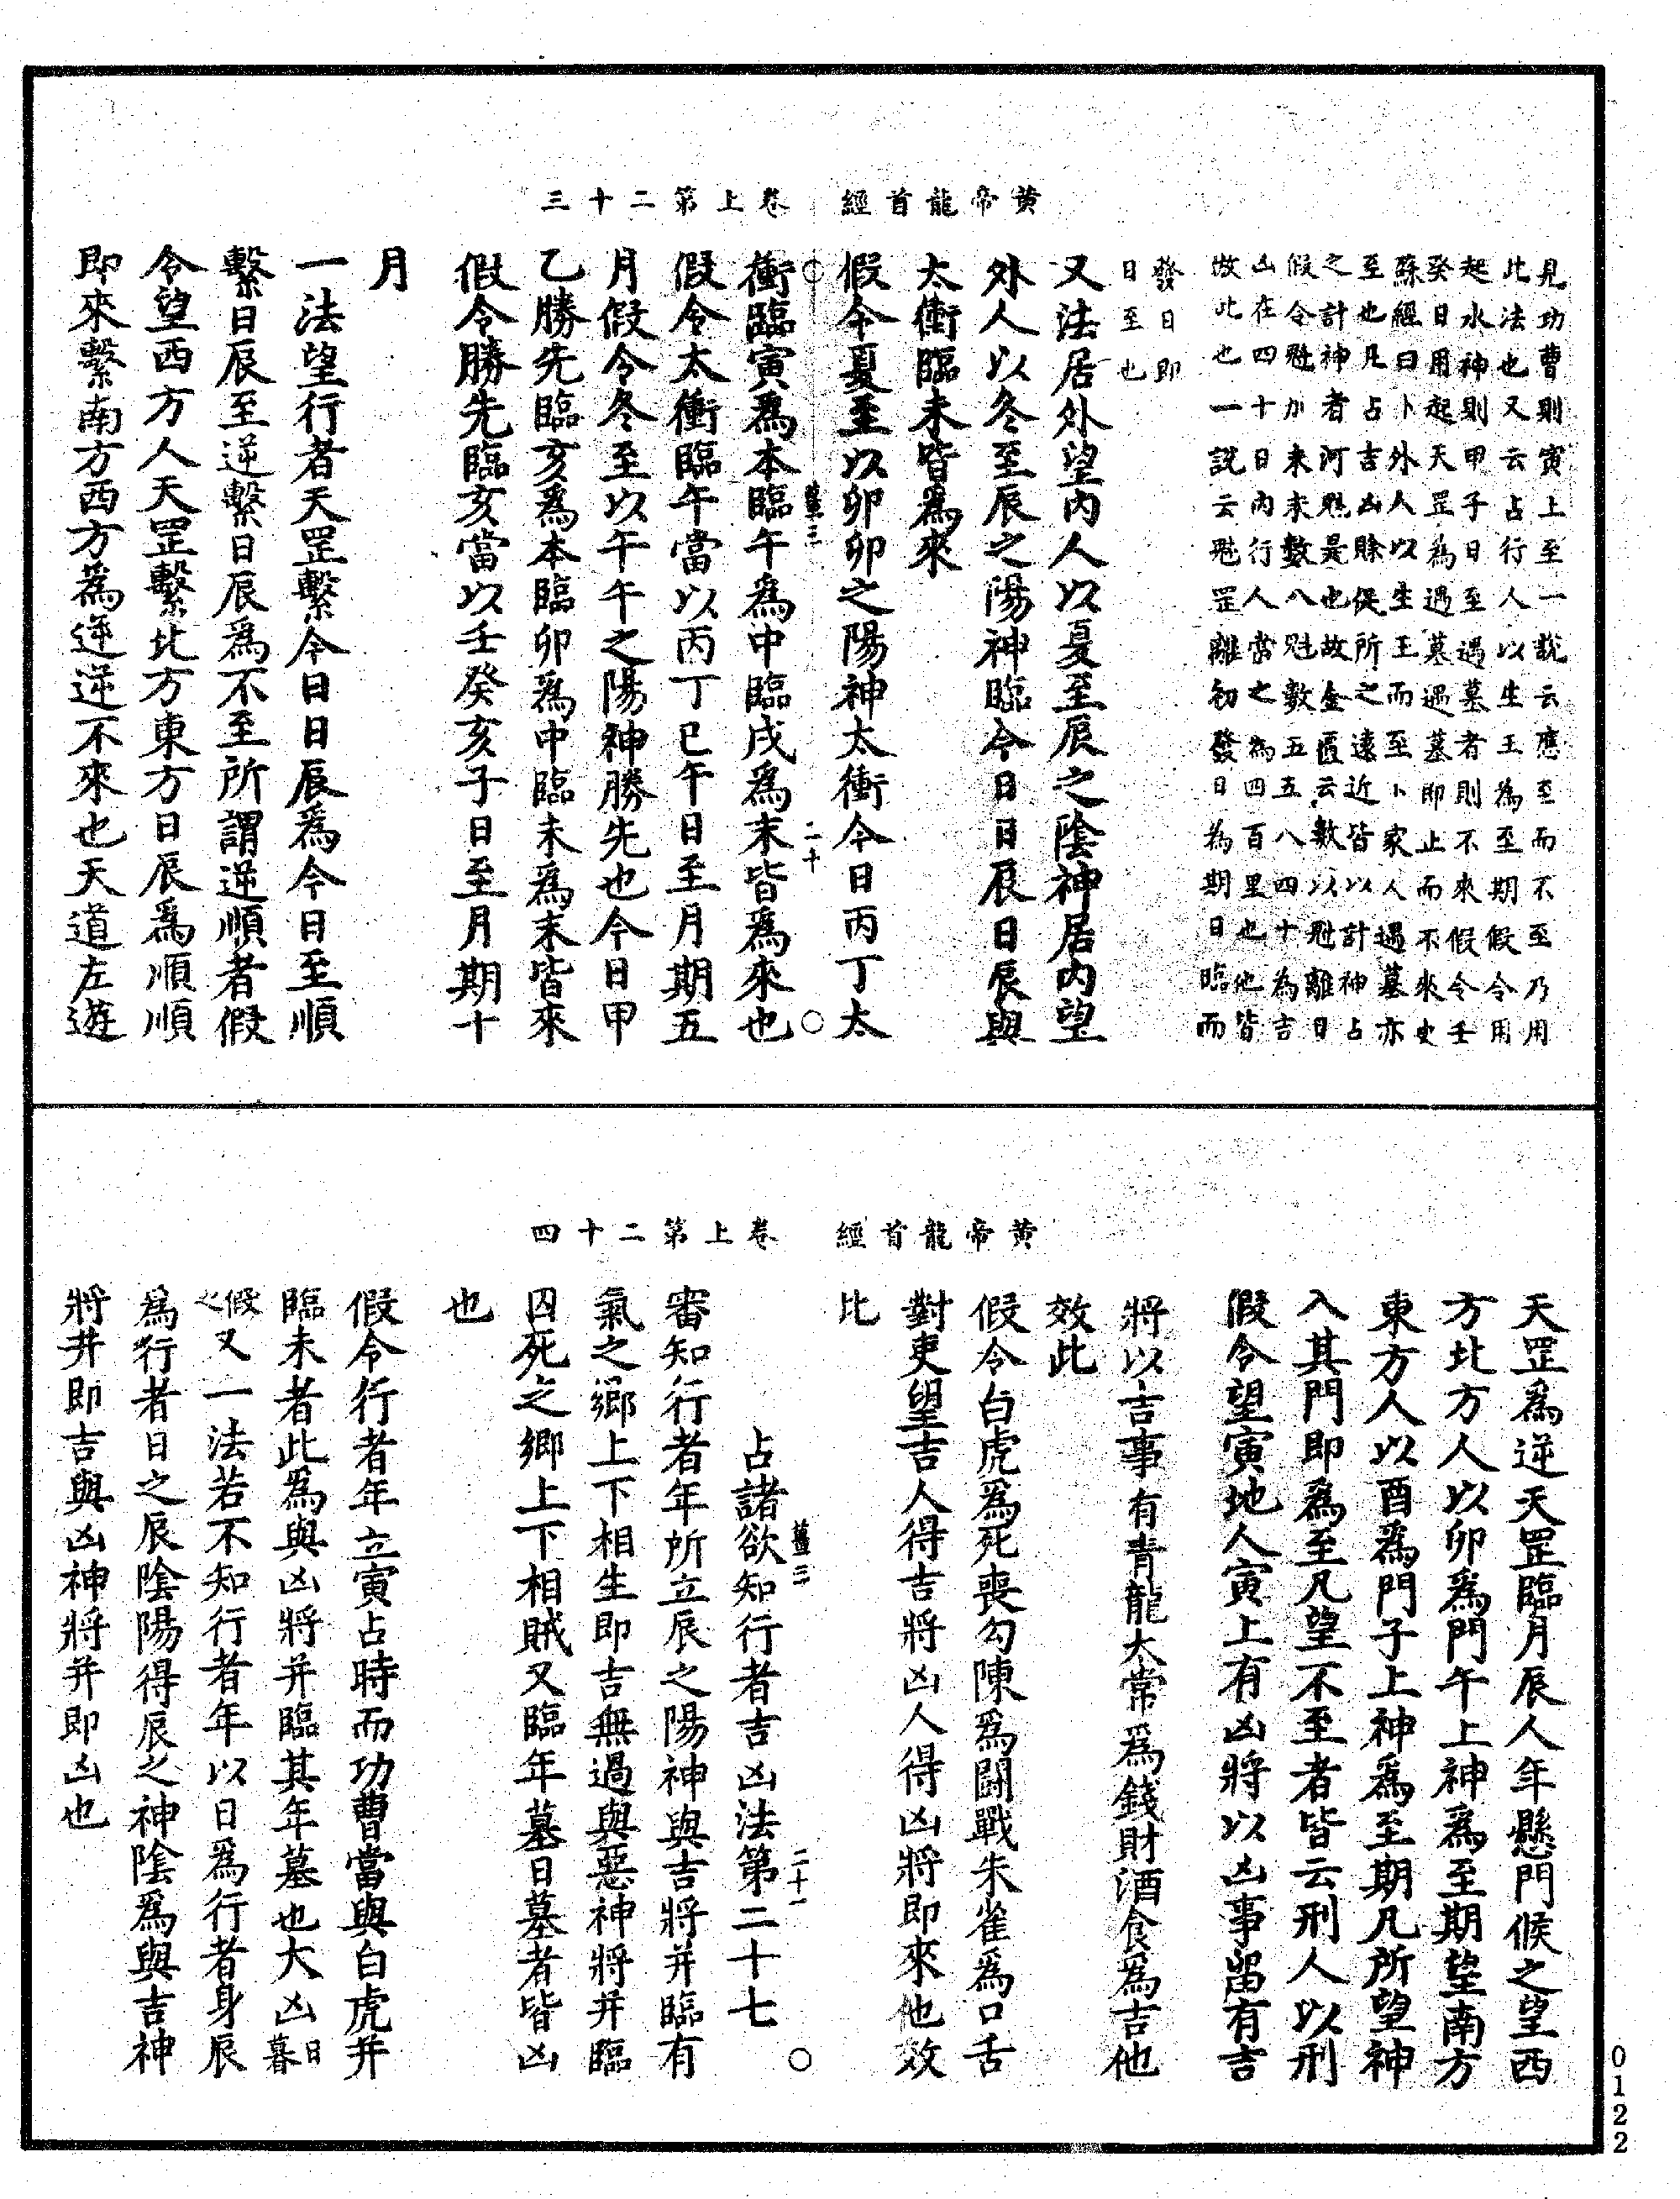 黄帝龍首經　卷上第二十三
見功曹則寅上至一說云應至而不至乃用
此法也又云占行人以生王為至期假令用
起水神則甲子日至遇墓者則不來假令壬
癸日用起天罡為遇墓遇墓即止而不來史
蘇經曰卜外人以生王而至卜家人遇墓亦
至也凡占吉凶賒促所之遠近皆以計神占
之計神者河魁是也故金匱云數以魁離日
假令魁加未未數八魁數五五八四十為吉
凶在四十日內行人當之為四百里也他皆
倣此也一說云魁罡離初發日為期日臨而
發日即
日至也
又法居外望內人以夏至辰之陰神居內望
外人以冬至辰之陽神臨今日日辰日辰與
太衝臨未皆為來
假令夏至以卯卯之陽神太衝今日丙丁太
薑三　二十
衝臨寅為本臨午為中臨戌為末皆為來也
假令太衝臨午當以丙丁巳午日至月期五
月假令冬至以午午之陽神勝先也今日甲
乙勝先臨亥為本臨卯為中臨未為末皆來
假令勝先臨亥當以壬癸亥子日至月期十
月
一法望行者天罡繫今日日辰為今日至順
繫日辰至逆繫日辰為不至所謂逆順者假
令望西方人天罡繫北方東方日辰為順順
即來繫南方西方為逆逆不來也天道左遊
黄帝龍首經　卷上第二十四
天罡為逆天罡臨月辰人年懸門候之望西
方北方人以卯為門午上神為至期望南方
東方人以酉為門子上神為至期凡所望神
入其門即為至凡望不至者皆云刑人以刑
假令望寅地人寅上有凶將以凶事留有吉
將以吉事有青龍太常為錢財酒食為吉他
效此
假令白虎為死喪勾陳為鬪戰朱雀為口舌
對吏望吉人得吉將凶人得凶將即來他效
比
薑三　二十一
占諸欲知行者吉凶法第二十七
審知行者年所立辰之陽神與吉將并臨有
氣之鄉上下相生即吉無過與惡神將并臨
囚死之鄉上下相賊又臨年墓日墓者皆凶
也
假令行者年立寅占時而功曹當與白虎并
臨未者此為與凶將并臨其年墓也大凶日暮
假之又一法若不知行者年以日為行者身辰
為行者日之辰陰陽得辰之神陰為與吉神
將并即吉與凶神將并即凶也
0122